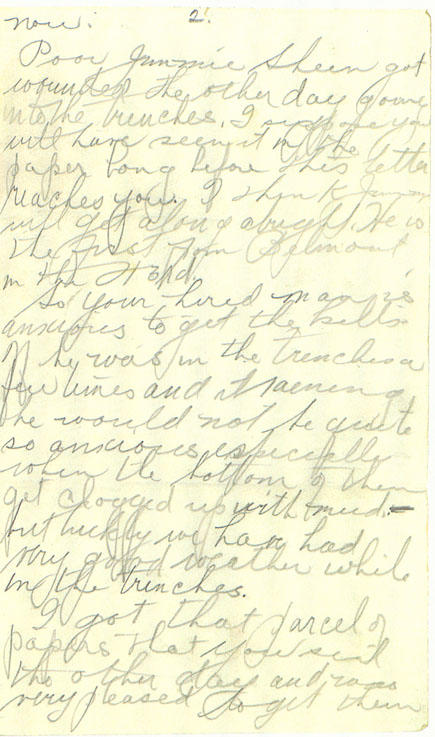 2.
now.
Poor Jimmie Sheen got
wounded the other day going
into the trenches. I suppose you
will have seen it in the
paper long before this letter
reaches you. I think Jimmie
will get along alright. He is
the first from Belmont
in the 43rd.
So your hired man is
anxious to get the kilts
If he was in the trenches a
few times and it raening
he would not be quite
so anxious especially
when the bottom of them
get clogged up with mud. -
but luckly we have had
very good weather while
in the trenches.
I got that parcel of
papers that you sent
the other day and was
very pleased to get them